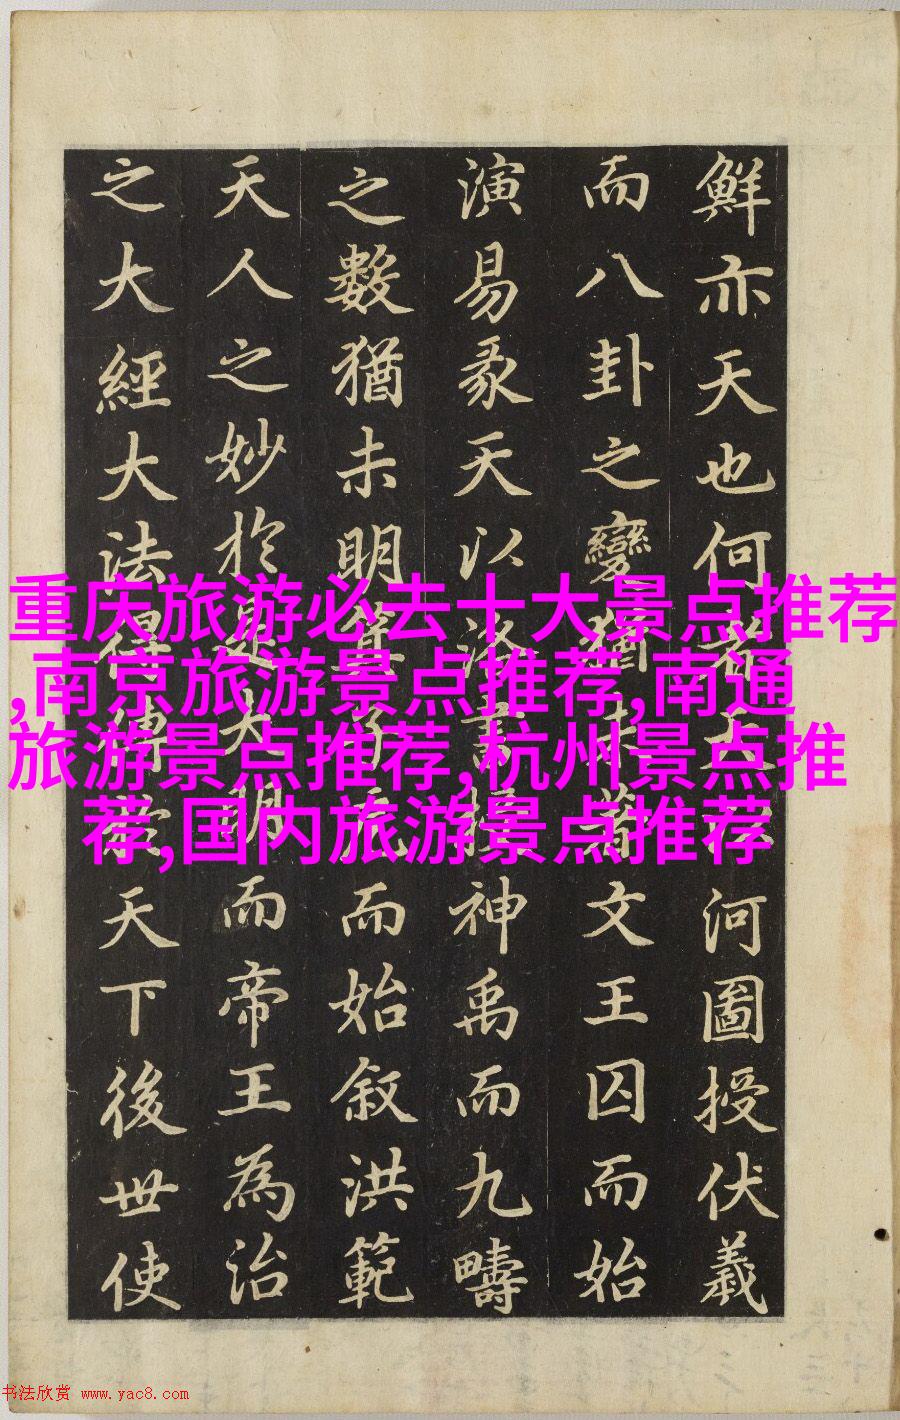 鮮亦天也何者河圖授伏羲
而八卦之變猶未著文王囚而始
演易彖天以洛書授神禹而九疇
之數猶未明而始叙洪範
天人之妙於是大明而帝王為治
之大經大法得傳天下後世使
重庆旅游必去十大景点推荐
,南京旅游景点推荐,南通
旅游景点推荐,杭州景点推
荐,国内旅游景点推荐
书法欣赏 www.yac8.com